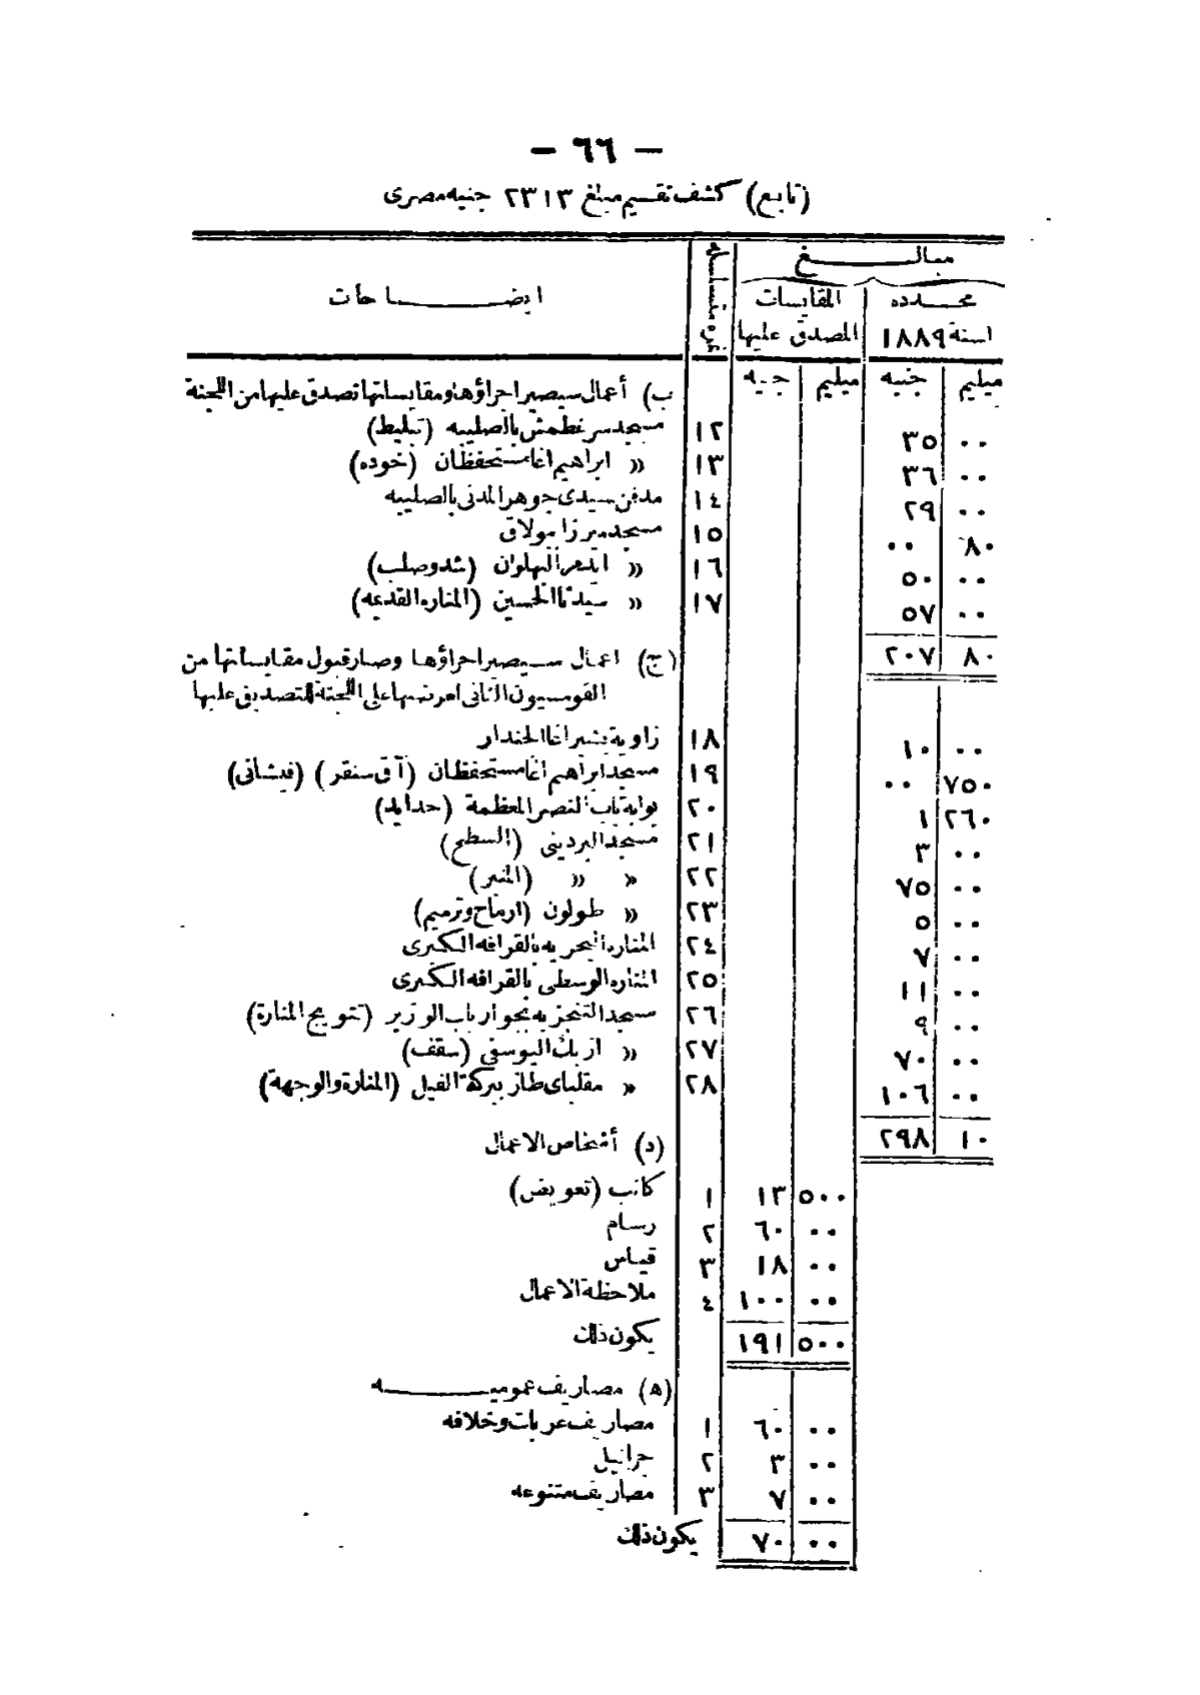 — ٦٦ —
(تابع) كشف تقسيم مبلغ ٢٣١٣ جنيه مصرى
مبالغ
محدده لسنة ١٨٨٩
المقايسات المصدق عليها
نمره متسلسله
ايضاحات
ميليم جنيه ميليم جنيه
(ب) أعمال سيصير اجراؤها ومقايساتها تصدق عليها من اللجنة
٠٠ ٣٥ ١٢ مسجد سرغطمش بالصليبه (تبليط)
٠٠ ٣٦ ١٣ » ابراهيم اغا مستحفظان (خوده)
٠٠ ٢٩ ١٤ مدفن سيدى جوهر المدنى بالصليبه
٨٠ ٠٠ ١٥ مسجد ميرزا بولاق
٠٠ ٥٠ ١٦ » ايدمر البهلوان (شد وصلب)
٠٠ ٥٧ ١٧ » سيدنا الحسين (المناره القديمه)
٨٠ ٢٠٧
(ج) اعمال سيصير اجراؤها وصار قبول مقايساتها من
القومسيون الثانى لعرضها على اللجنة للتصديق عليها
٠٠ ١٠ ١٨ زاوية بشير اغا الجندار
٧٥٠ ٠٠ ١٩ مسجد ابراهيم اغا مستحفظان (آق سنقر) (فيشانى)
٢٦٠ ١ ٢٠ بوابة باب النصر المعظمة (حدايد)
٠٠ ٣ ٢١ مسجد البردينى (السطح)
٠٠ ٧٥ ٢٢ » » (المنبر)
٠٠ ٥ ٢٣ » طولون (ارماح وترميم)
٠٠ ٧ ٢٤ المناره البحريه بالقرافه الكبرى
٠٠ ١١ ٢٥ المناره الوسطى بالقرافه الكبرى
٠٠ ٩ ٢٦ مسجد التنجزيه بجوار باب الوزير (تتويج المنارة)
٠٠ ٧٠ ٢٧ » ازبك اليوسفى (سقف)
٠٠ ١٠٦ ٢٨ » مقلباى طاز ببركة الفيل (المنارة والوجهة)
١٠ ٢٩٨
(د) أشخاص الاعمال
٥٠٠ ١٣ ١ كاتب (تعويض)
٠٠ ٦٠ ٢ رسام
٠٠ ١٨ ٣ قياس
٠٠ ١٠٠ ٤ ملاحظة الاعمال
٥٠٠ ١٩١ يكون ذلك
(ه) مصاريف عموميه
٠٠ ٦٠ ١ مصاريف عربات وخلافه
٠٠ ٣ ٢ جرانيل
٠٠ ٧ ٣ مصاريف متنوعه
٠٠ ٧٠ يكون ذلك